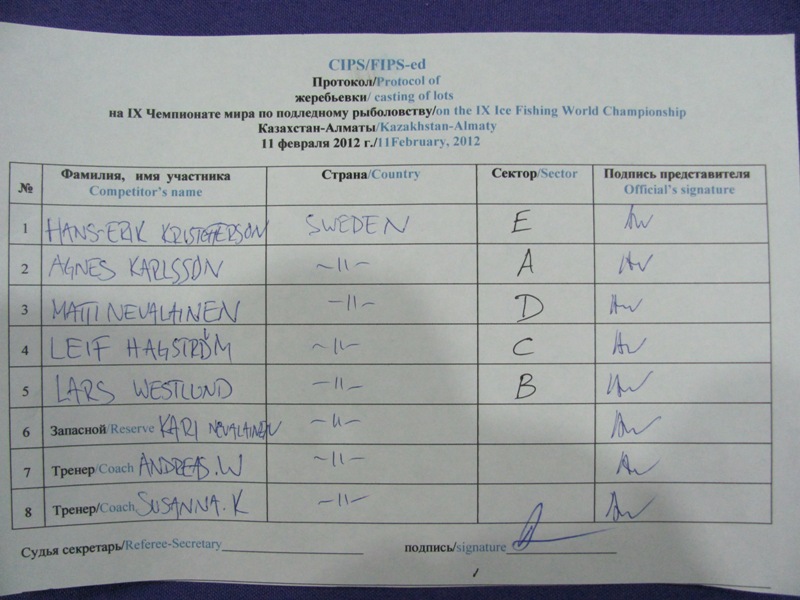 CIPS/FIPS-ed
Протокол/Protocol of
жеребьевки/ casting of lots
на IX Чемпионате мира по подледному рыболовству/on the IX Ice Fishing World Championship
Казахстан-Алматы/Kazakhstan-Almaty
11 февраля 2012 г./11February, 2012
№ Фамилия, имя участника Страна/Country Сектор/Sector Подпись представителя
Competitor's name Official's signature
1 HANS-ERIK SWEDEN E
2 AGNES KARLSSON -11- A
3 MATTI NEVALAINEN -11- D
4 LEIF HAGSTRÖM -11- C
5 LARS WESTLUND -11- B
6 Запасной/Reserve KARI NEVALAINEN -11-
7 Тренер/Coach ANDREAS.W -11-
8 Тренер/Coach SUSANNA.K -11-
Судья секретарь/Referee-Secretary подпись/signature